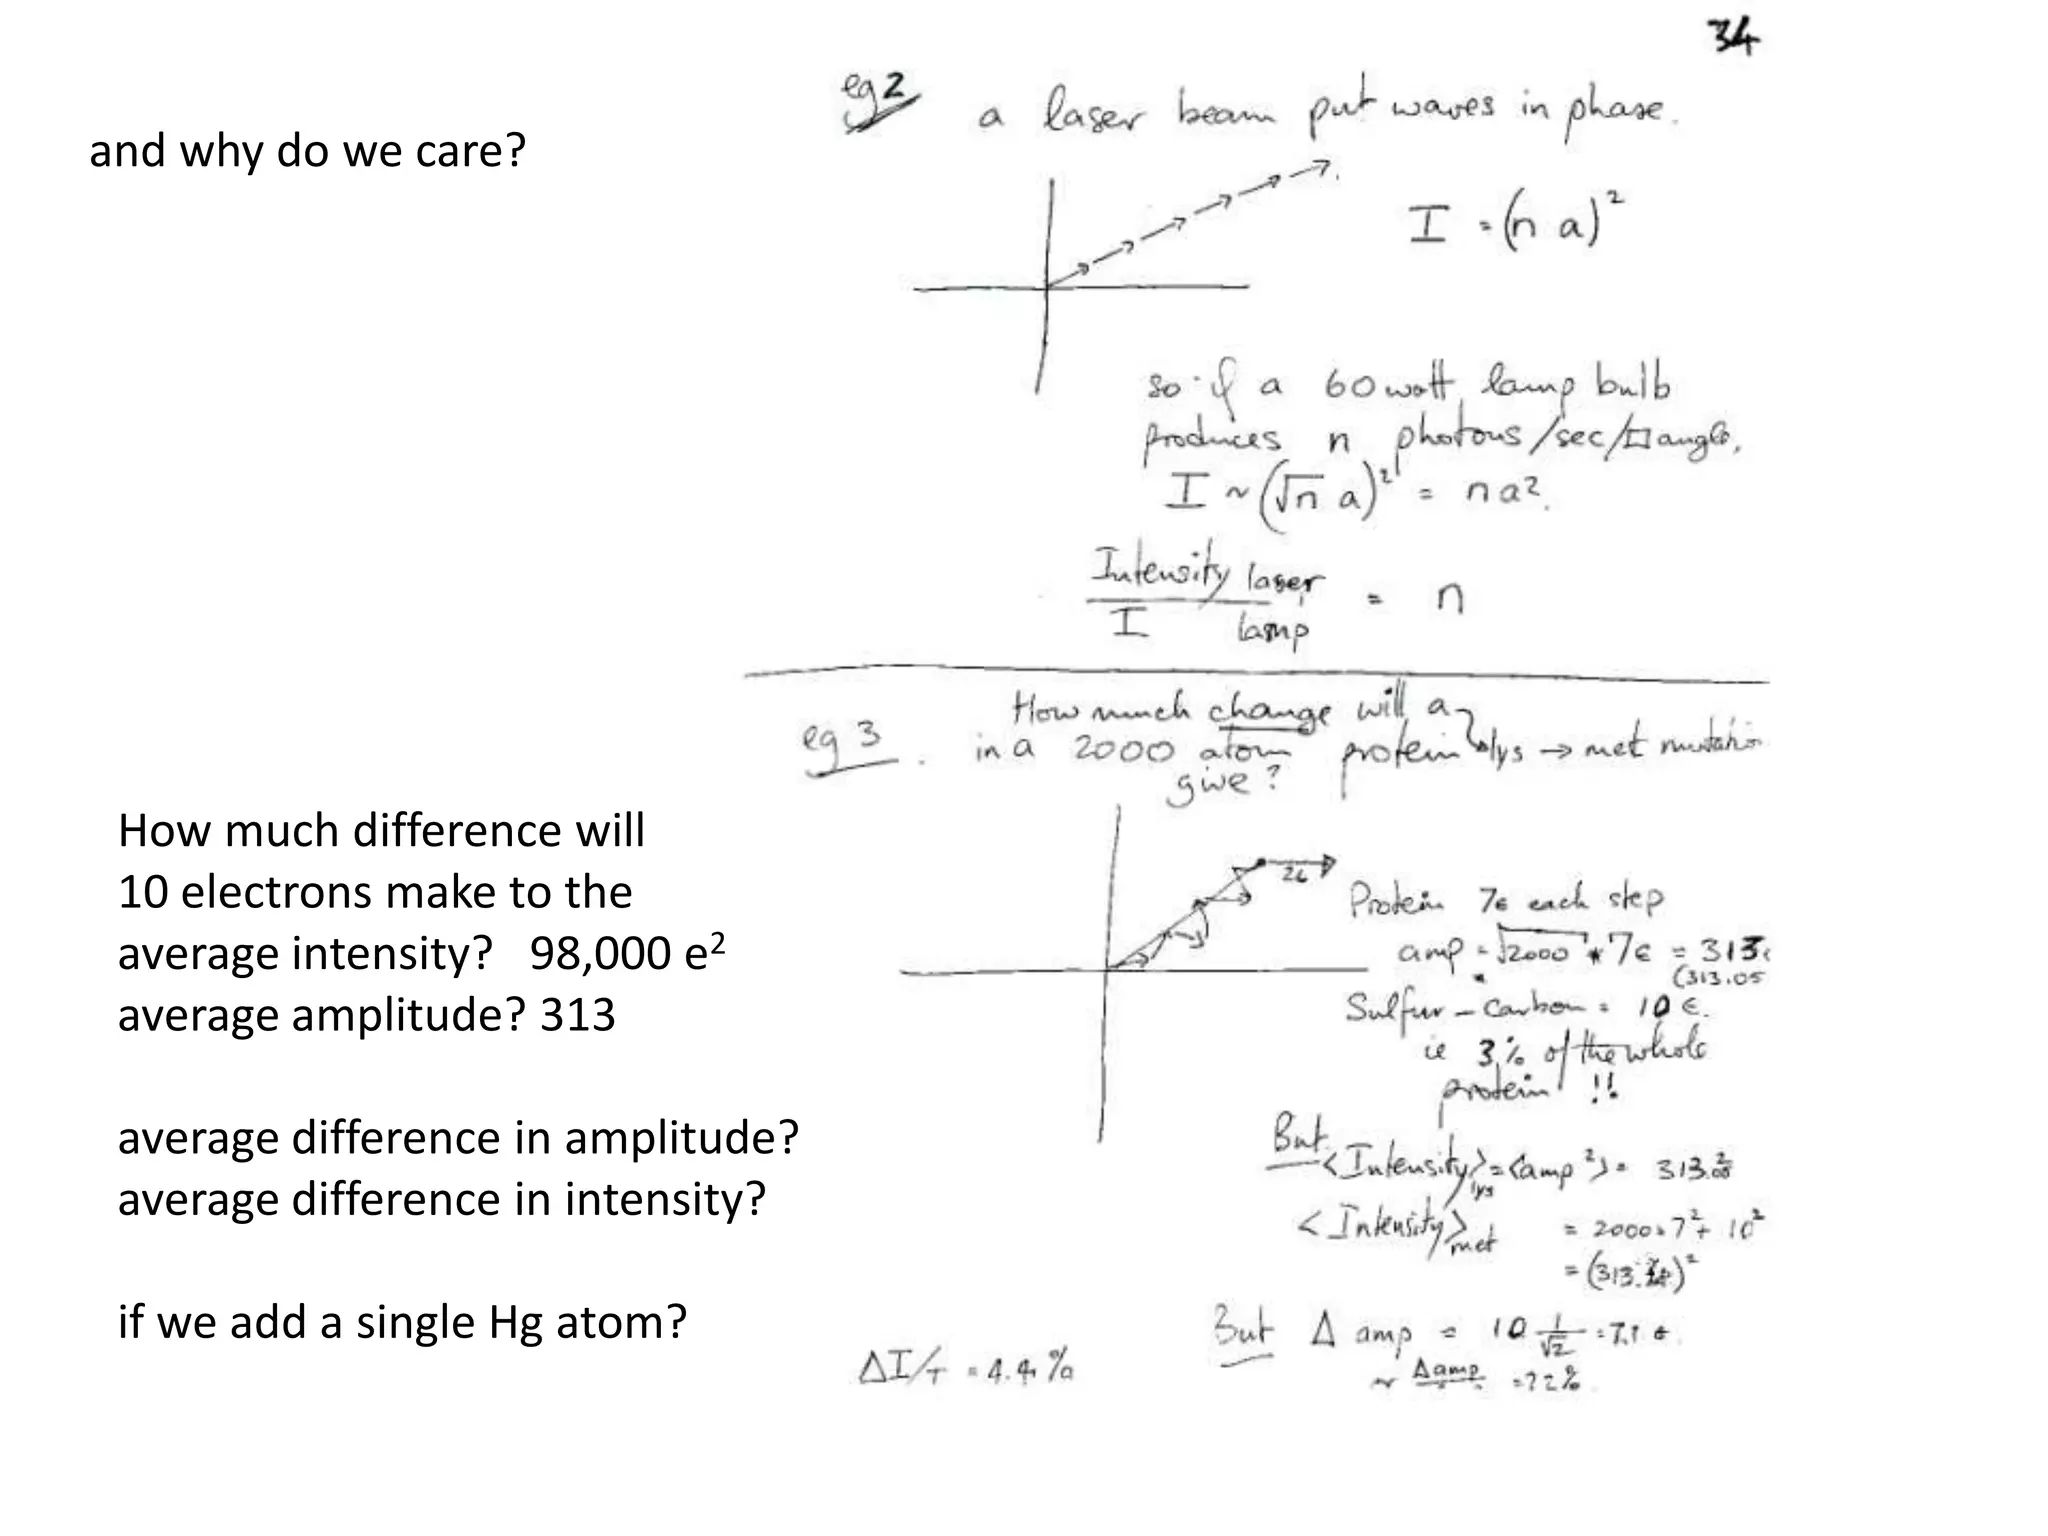 34
and why do we care?
eg 2 a laser beam put waves in phase.
I = (n a)²
so if a 60 watt lamp bulb
produces n photons/sec/□ angle.
I ~ (√n a)² = na².
Intensity laser
I lamp
= n
eg 3. How much change will a lys → met mutation
in a 2000 atom protein
give?
How much difference will
10 electrons make to the
average intensity? 98,000 e²
average amplitude? 313
average difference in amplitude?
average difference in intensity?
if we add a single Hg atom?
26
Protein 7e each step
amp = √2000 * 7e = 313
(313.05
Sulfur - Carbon = 10 e.
ie 3% of the whole
protein !!
But
<Intensity>lys = <amp²> = 313.05²
<Intensity>met = 2000.7² + 10²
But Δ amp = 10 1/√2 = 7.1 e.
~ Δamp = 2.2%
ΔI/I = 4.4%